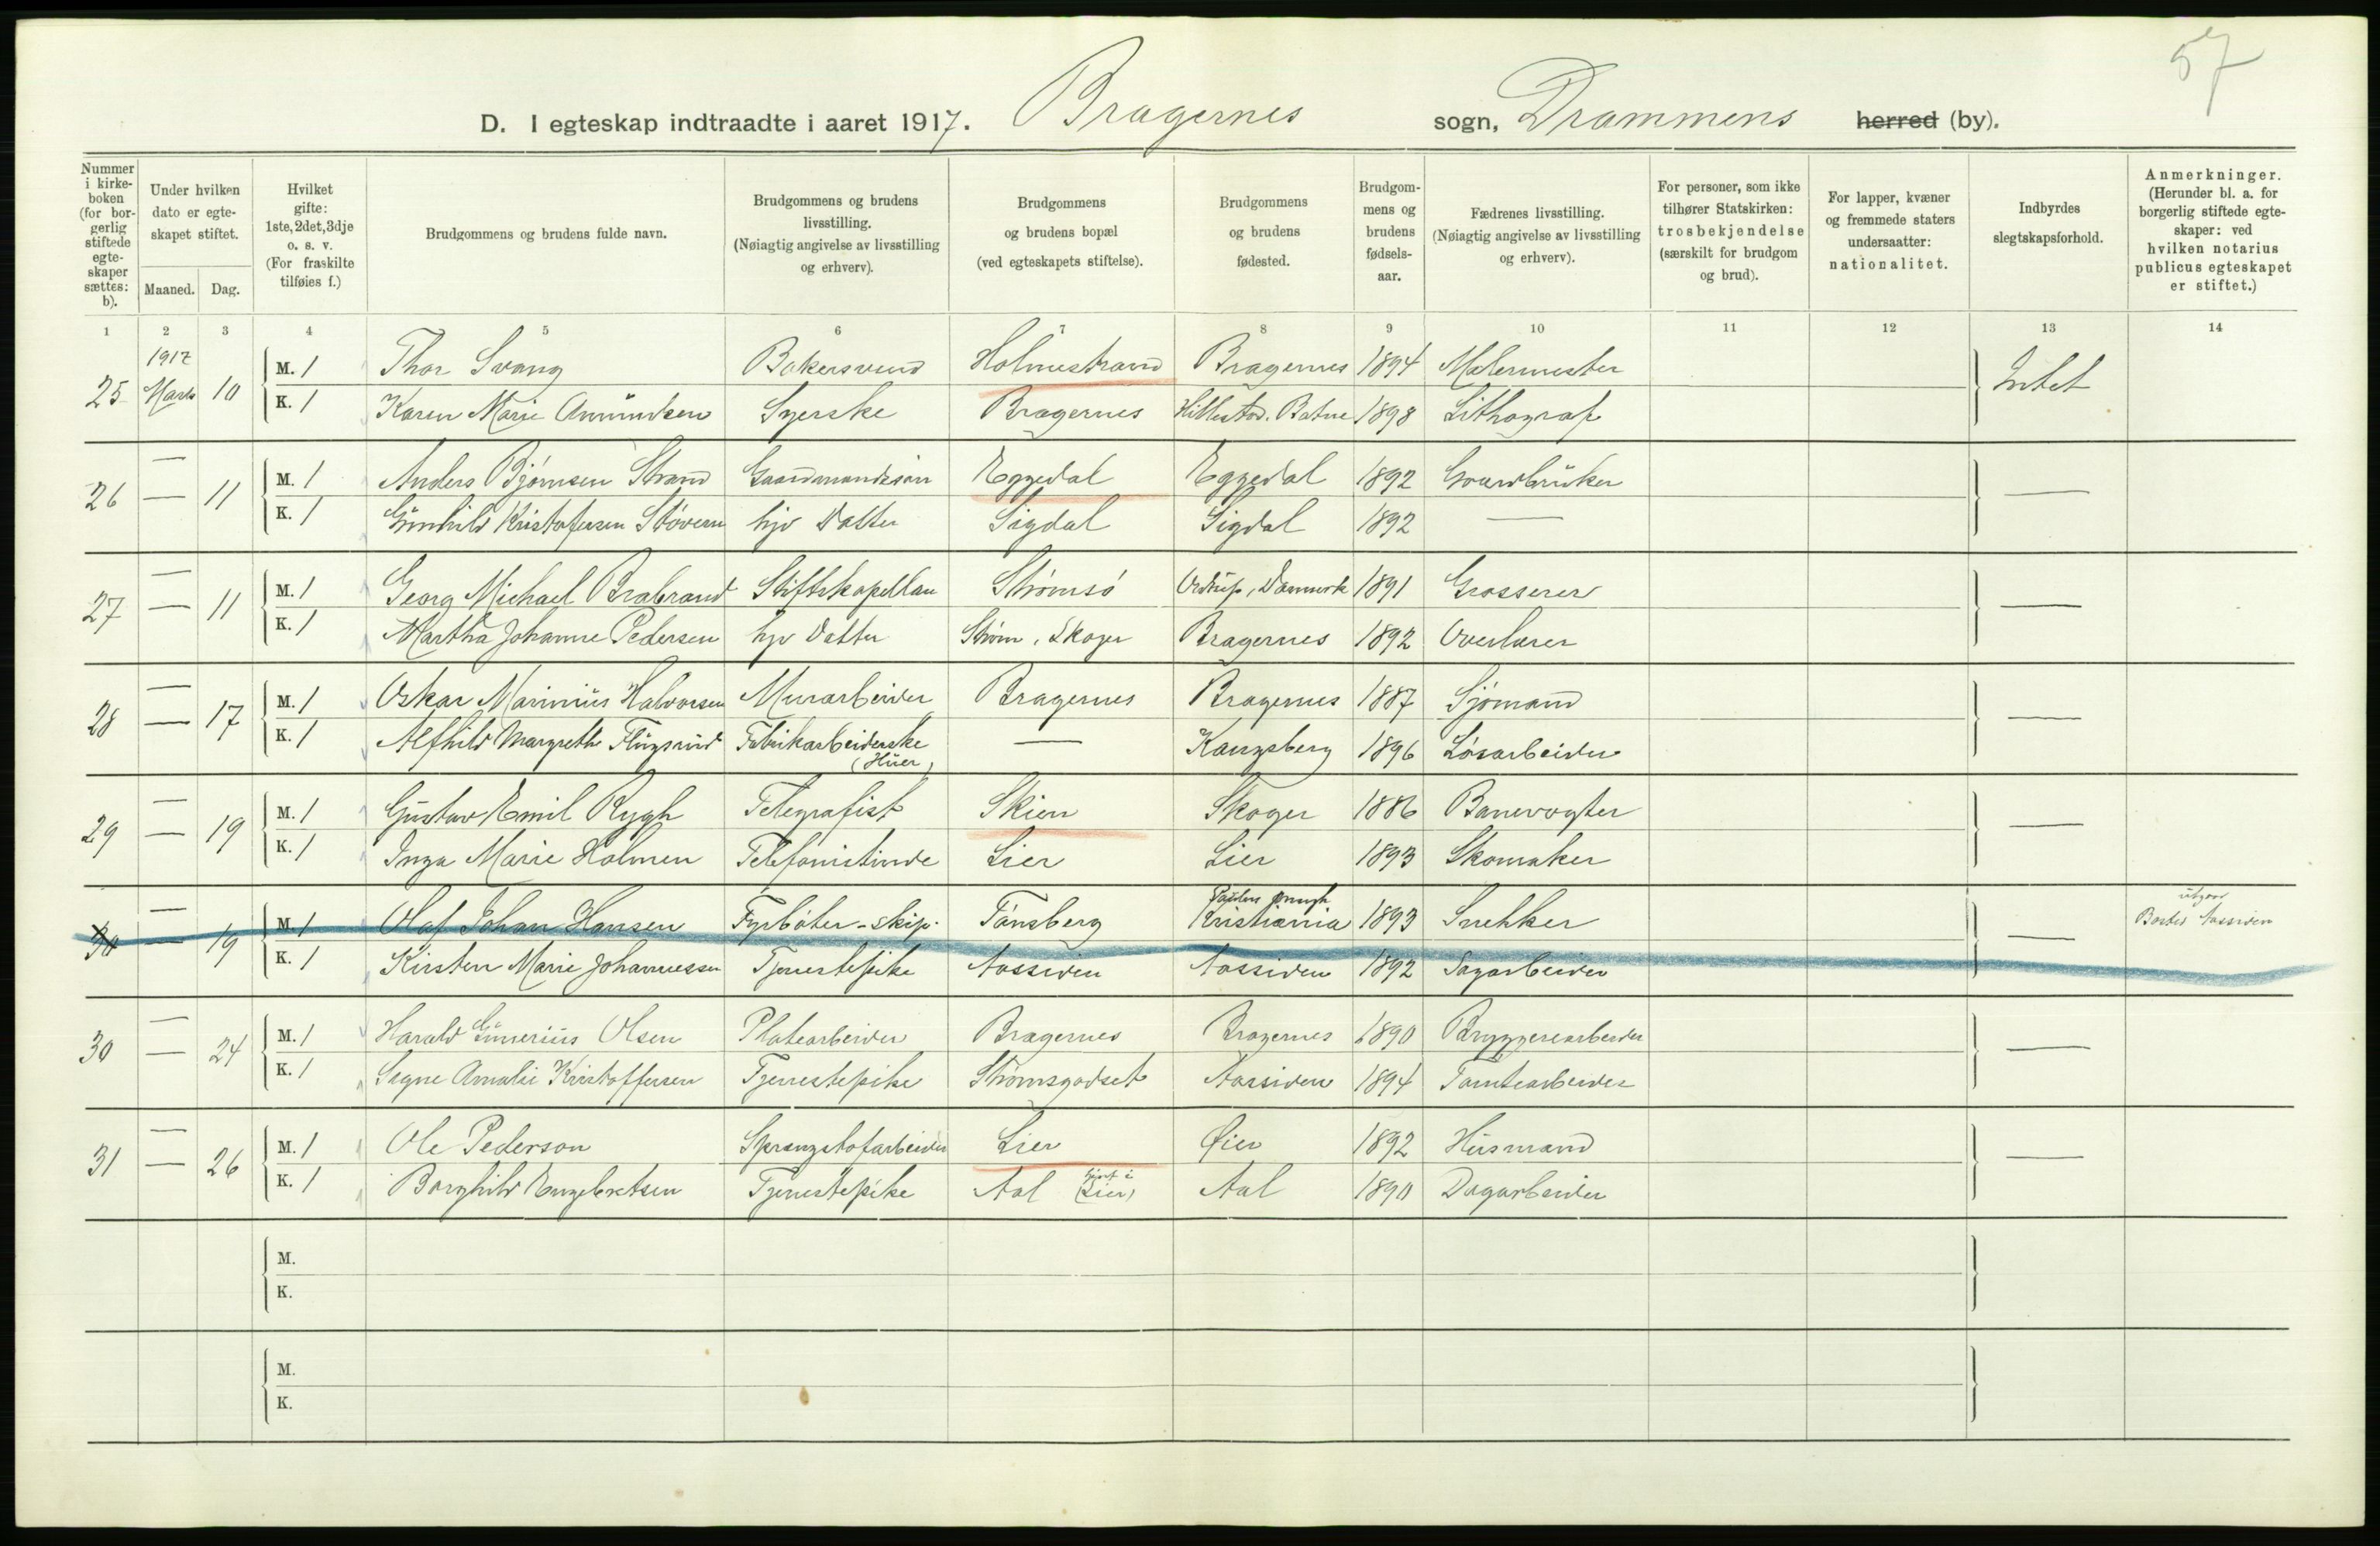 57
D. I egteskap indtraadte i aaret 1917. Bragernes sogn, Drammens herred (by).
Nummer i kirke-boken (for bor-gerlig stiftede egte-skaper sættes: b).
Under hvilken dato er egte-skapet stiftet.
Maaned. Dag.
Hvilket gifte: 1ste, 2det, 3dje o. s. v. (For fraskilte tilføies f.)
Brudgommens og brudens fulde navn.
Brudgommens og brudens livsstilling. (Nøiagtig angivelse av livsstilling og erhverv).
Brudgommens og brudens bopæl (ved egteskapets stiftelse).
Brudgommens og brudens fødested.
Brudgom-mens og brudens fødsels-aar.
Fædrenes livsstilling. (Nøiagtig angivelse av livsstilling og erhverv).
For personer, som ikke tilhører Statskirken: trosbekjendelse (særskilt for brudgom og brud).
For lapper, kvæner og fremmede staters undersaatter: nationalitet.
Indbyrdes slegtskapsforhold.
Anmerkninger. (Herunder bl. a. for borgerlig stiftede egte-skaper: ved hvilken notarius publicus egteskapet er stiftet.)
1 2 3 4 5 6 7 8 9 10 11 12 13 14
1917
25 Marts 10 M. 1 Thor Svang Bakersvend Holmestrand Bragernes 1894 Malermester Intet
K. 1 Karen Marie Amundsen Syerske Bragernes Hillestad. Botne 1898 Lithograf
26 — 11 M. 1 Anders Bjørnsen Strand Gaardmandssøn Eggedal Eggedal 1892 Gaardbruker —
K. 1 Gunhild Kristofersen Støvern hjv Datter Sigdal Sigdal 1892 —
27 — 11 M. 1 Georg Michael Brabrand Stiftskapellan Strømsø Ordrup, Danmark 1891 Grosserer —
K. 1 Martha Johanne Pedersen hjv Datter Strøm, Skoger Bragernes 1892 Overlærer
28 — 17 M. 1 Oskar Marinius Halvorsen Murarbeider Bragernes Bragernes 1887 Sjømand —
K. 1 Alfhild Margrethe Flugsrud Fabrikarbeiderske — Kongsberg 1896 Løsarbeider
29 — 19 M. 1 Gustav Emil Rygh Telegrafist Skien Skoger 1886 Banevogter —
K. 1 Inga Marie Holmen Telefonistinde Lier Lier 1893 Skomaker
30 — 19 M. 1 Olaf Johan Hansen Fyrbøter - skip. Tønsberg Kristiania 1893 Snekker — utgaar
K. 1 Kirsten Marie Johannessen Tjenestepike Aassiden Aassiden 1892 Sagarbeider
30 — 24 M. 1 Harald Gunerius Olsen Platearbeider Bragernes Bragernes 1890 Bryggerearbeider —
K. 1 Signe Amalie Kristoffersen Tjenestepike Strømsgodset Aassiden 1894 Tomtearbeider
31 — 26 M. 1 Ole Pederson Sprengstofarbeider Lier Øier 1892 Husmand —
K. 1 Borghild Engebretsen Tjenestepike Aal (Lier) Aal 1890 Dagarbeider
M.
K.
M.
K.